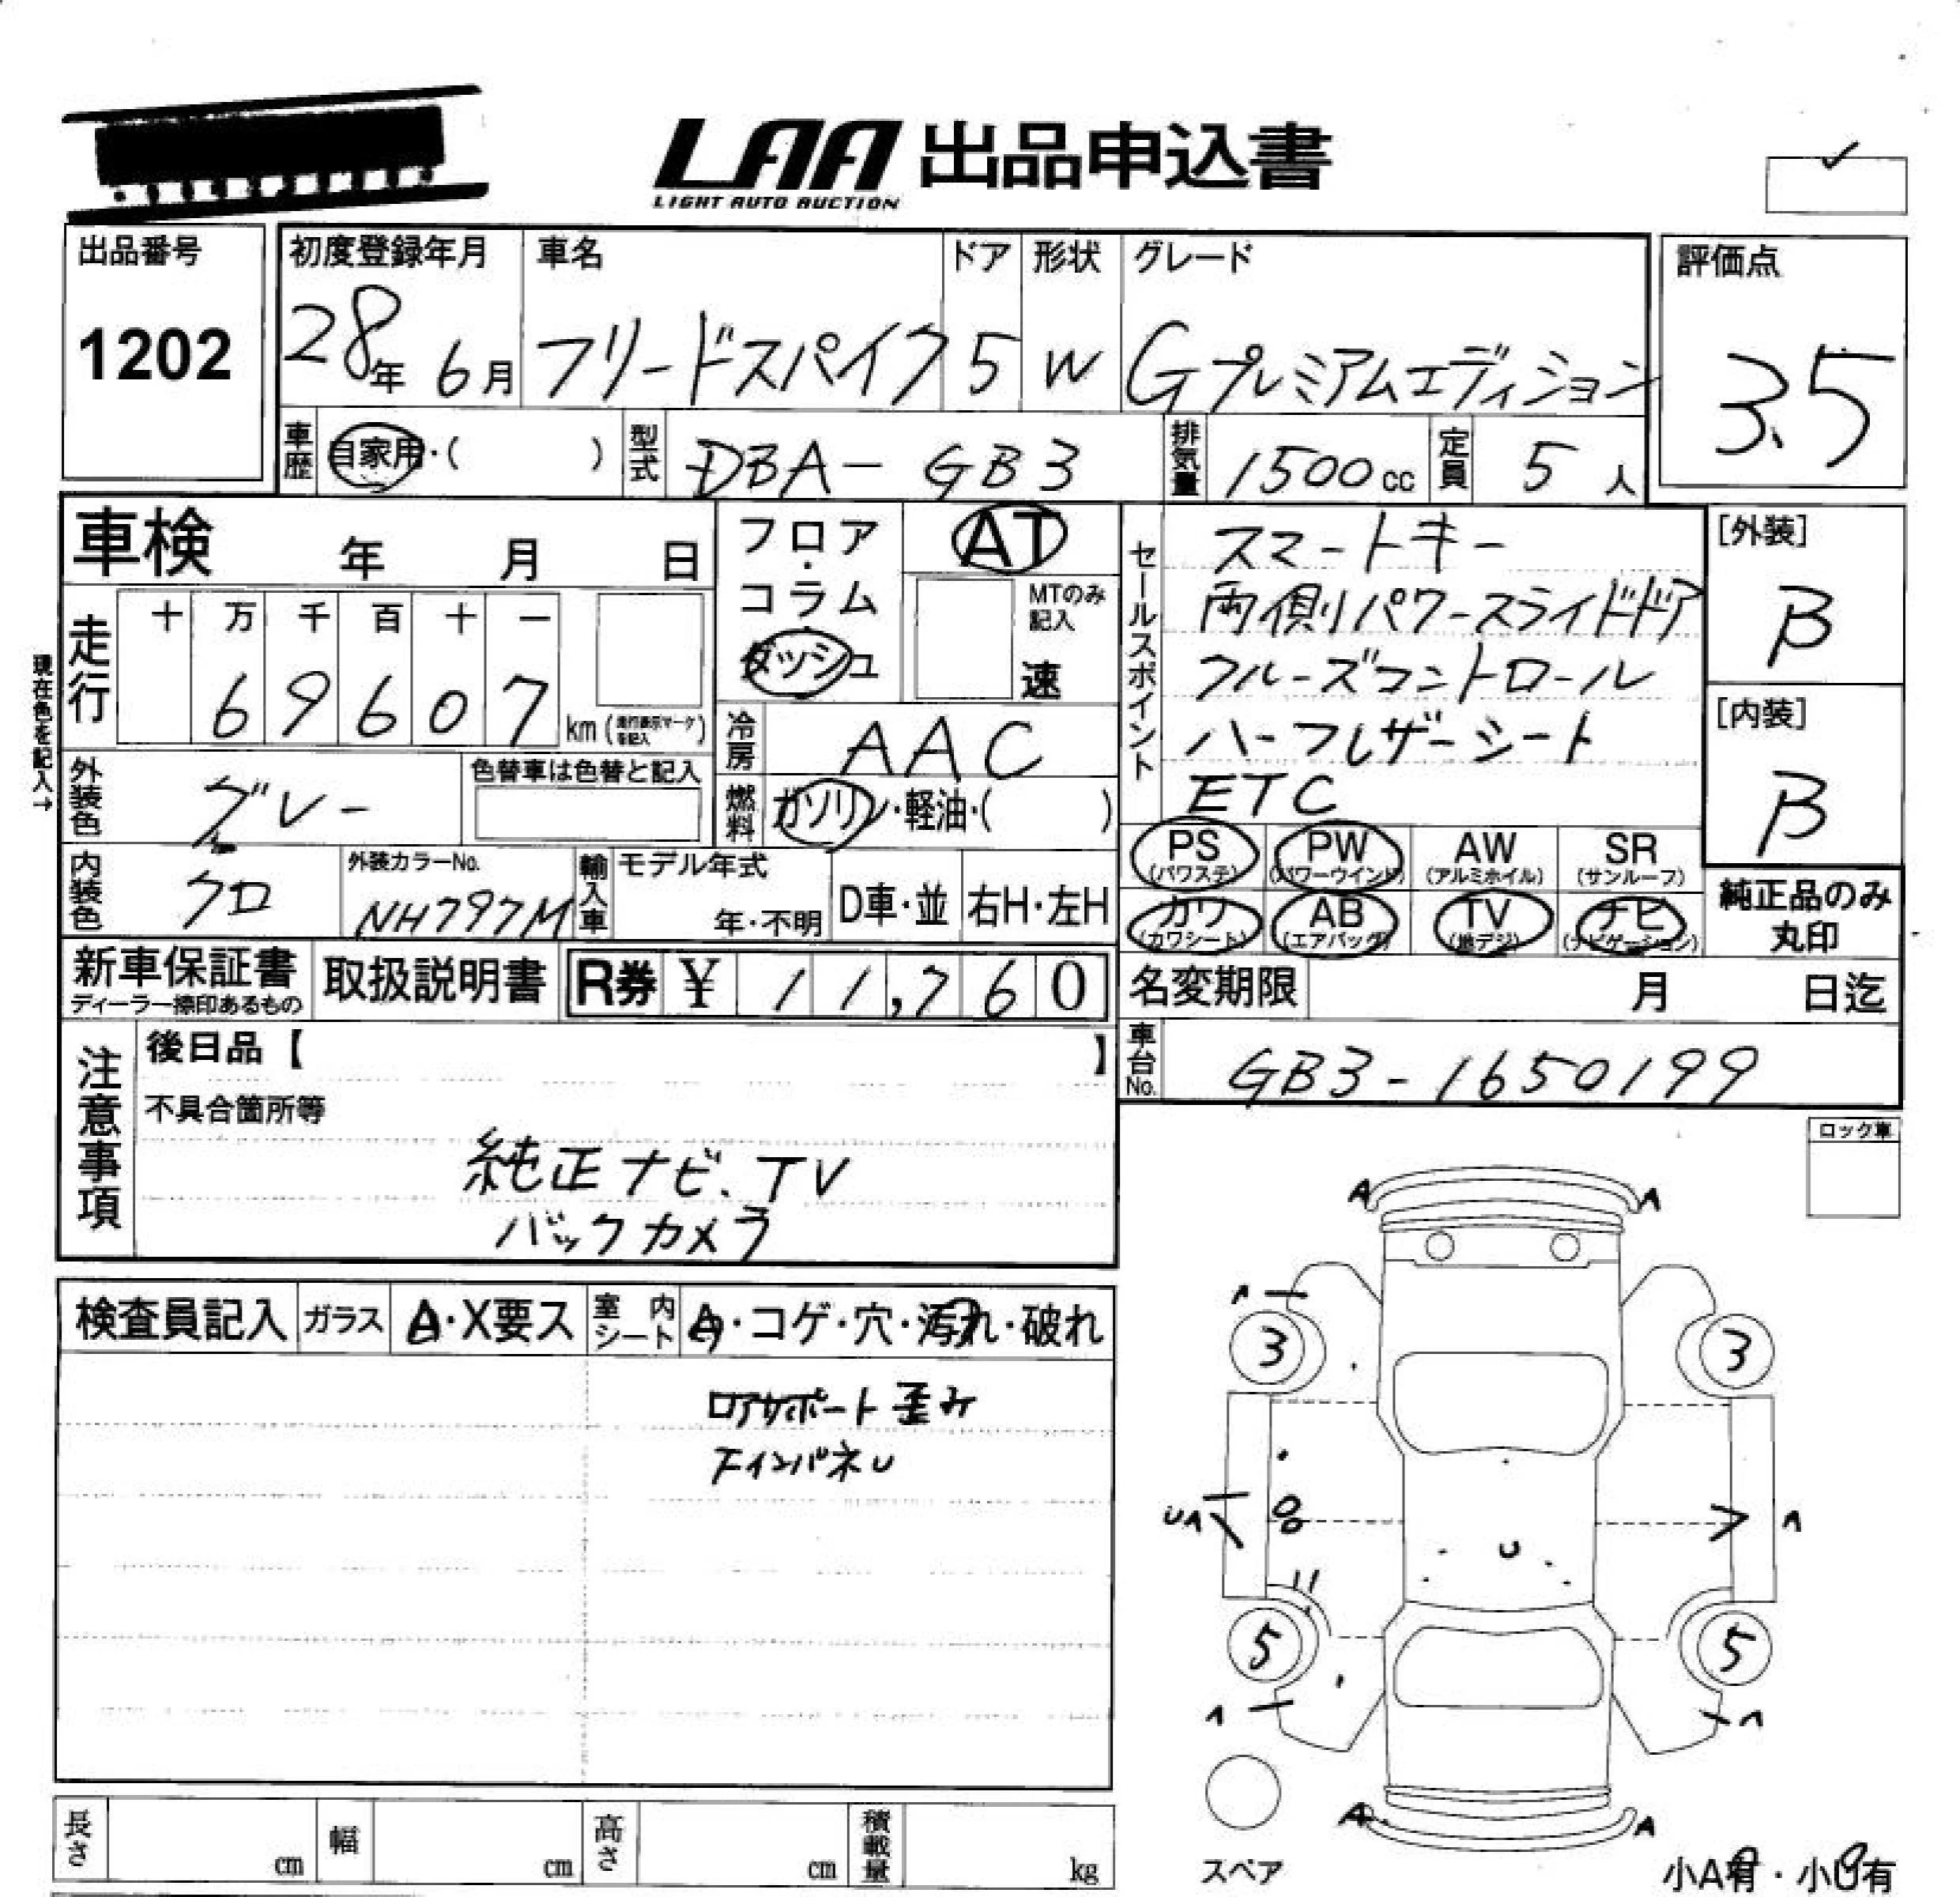 LAA 出品申込書
LIGHT AUTO AUCTION
出品番号
1202
初度登録年月
28年 6月
車名
フリードスパイク
ドア
5
形状
W
グレード
Gプレミアムエディション
評価点
3.5
車歴
自家用・( )
型式
DBA-GB3
排気量
1500cc
定員
5人
車検 年 月 日
フロア・コラム
ダッシュ
AT
MTのみ記入
速
セールスポイント
スマートキー
両側パワースライドドア
クルーズコントロール
ハーフレザーシート
ETC
[外装]
B
[内装]
B
現在色を記入→
走行
十 万 千 百 十 一
6 9 6 0 7
km (走行表示マークを記入)
冷房
AAC
外装色
グレー
色替車は色替と記入
燃料
ガソリン・軽油・( )
PS (パワステ)
PW (パワーウインド)
AW (アルミホイル)
SR (サンルーフ)
カワ (カワシート)
AB (エアバッグ)
TV (地デジ)
ナビ (ナビゲーション)
純正品のみ丸印
内装色
クロ
外装カラーNo.
NH797M
輸入車
モデル年式
年・不明
D車・並
右H・左H
新車保証書
ディーラー捺印あるもの
取扱説明書
R券 ¥ 11,760
名変期限 月 日迄
車台No.
GB3-1650199
注意事項
後日品【 】
不具合箇所等
純正ナビ、TV
バックカメラ
ロック車
検査員記入
ガラス
A・X要ス
室内シート
A・コゲ・穴・汚れ・破れ
ロアサポート歪み
インパネU
A A
3 3
U
5 5
A A
スペア
小A有・小U有
長さ cm
幅 cm
高さ cm
積載量 kg